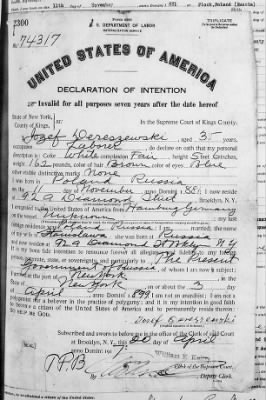 12th November Plock, Poland (Russia)
2300
U. S. DEPARTMENT OF LABOR
No. 74317
UNITED STATES OF AMERICA
DECLARATION OF INTENTION
Invalid for all purposes seven years after the date hereof
State of New York,
County of Kings, ss:
In the Supreme Court of Kings County.
I, Josef Derezewski, aged 35 years,
occupation Laborer, do declare on oath that my personal
description is: Color White, complexion Fair, height 5 feet inches,
weight 162 color of hair Brown, color of eyes Blue
other visible distinctive marks None
I was born in Poland Russia
on the day of November, anno Domini 1; I now reside
at Diamond Street, Brooklyn, N.Y.
I emigrated to the United States of America from Hamburg Germany
on the vessel unknown; my last
foreign residence was Poland Russia; I am married; the name
of my wife is Stanislawa; Russia
and now resides at Diamond St Bklyn N.Y.
It is my bona fide intention to renounce forever all allegiance and fidelity to any foreign
prince, potentate, state, or sovereignty, and particularly to The Present
Government of Russia, of whom I am now a subject;
I arrived at the port of New York, in the
State of New York, on or about the 3 day
of April, anno Domini 1899; I am not an anarchist; I am not a
polygamist nor a believer in the practice of polygamy; and it is my intention in good faith
to become a citizen of the United States of America and to permanently reside therein:
SO HELP ME GOD.
Josef Derezewski
Subscribed and sworn to before me in the office of the Clerk of said Court
at Brooklyn, N.Y., this 20 day of April
anno Domini 19
Clerk of the Supreme Court.
Deputy Clerk.